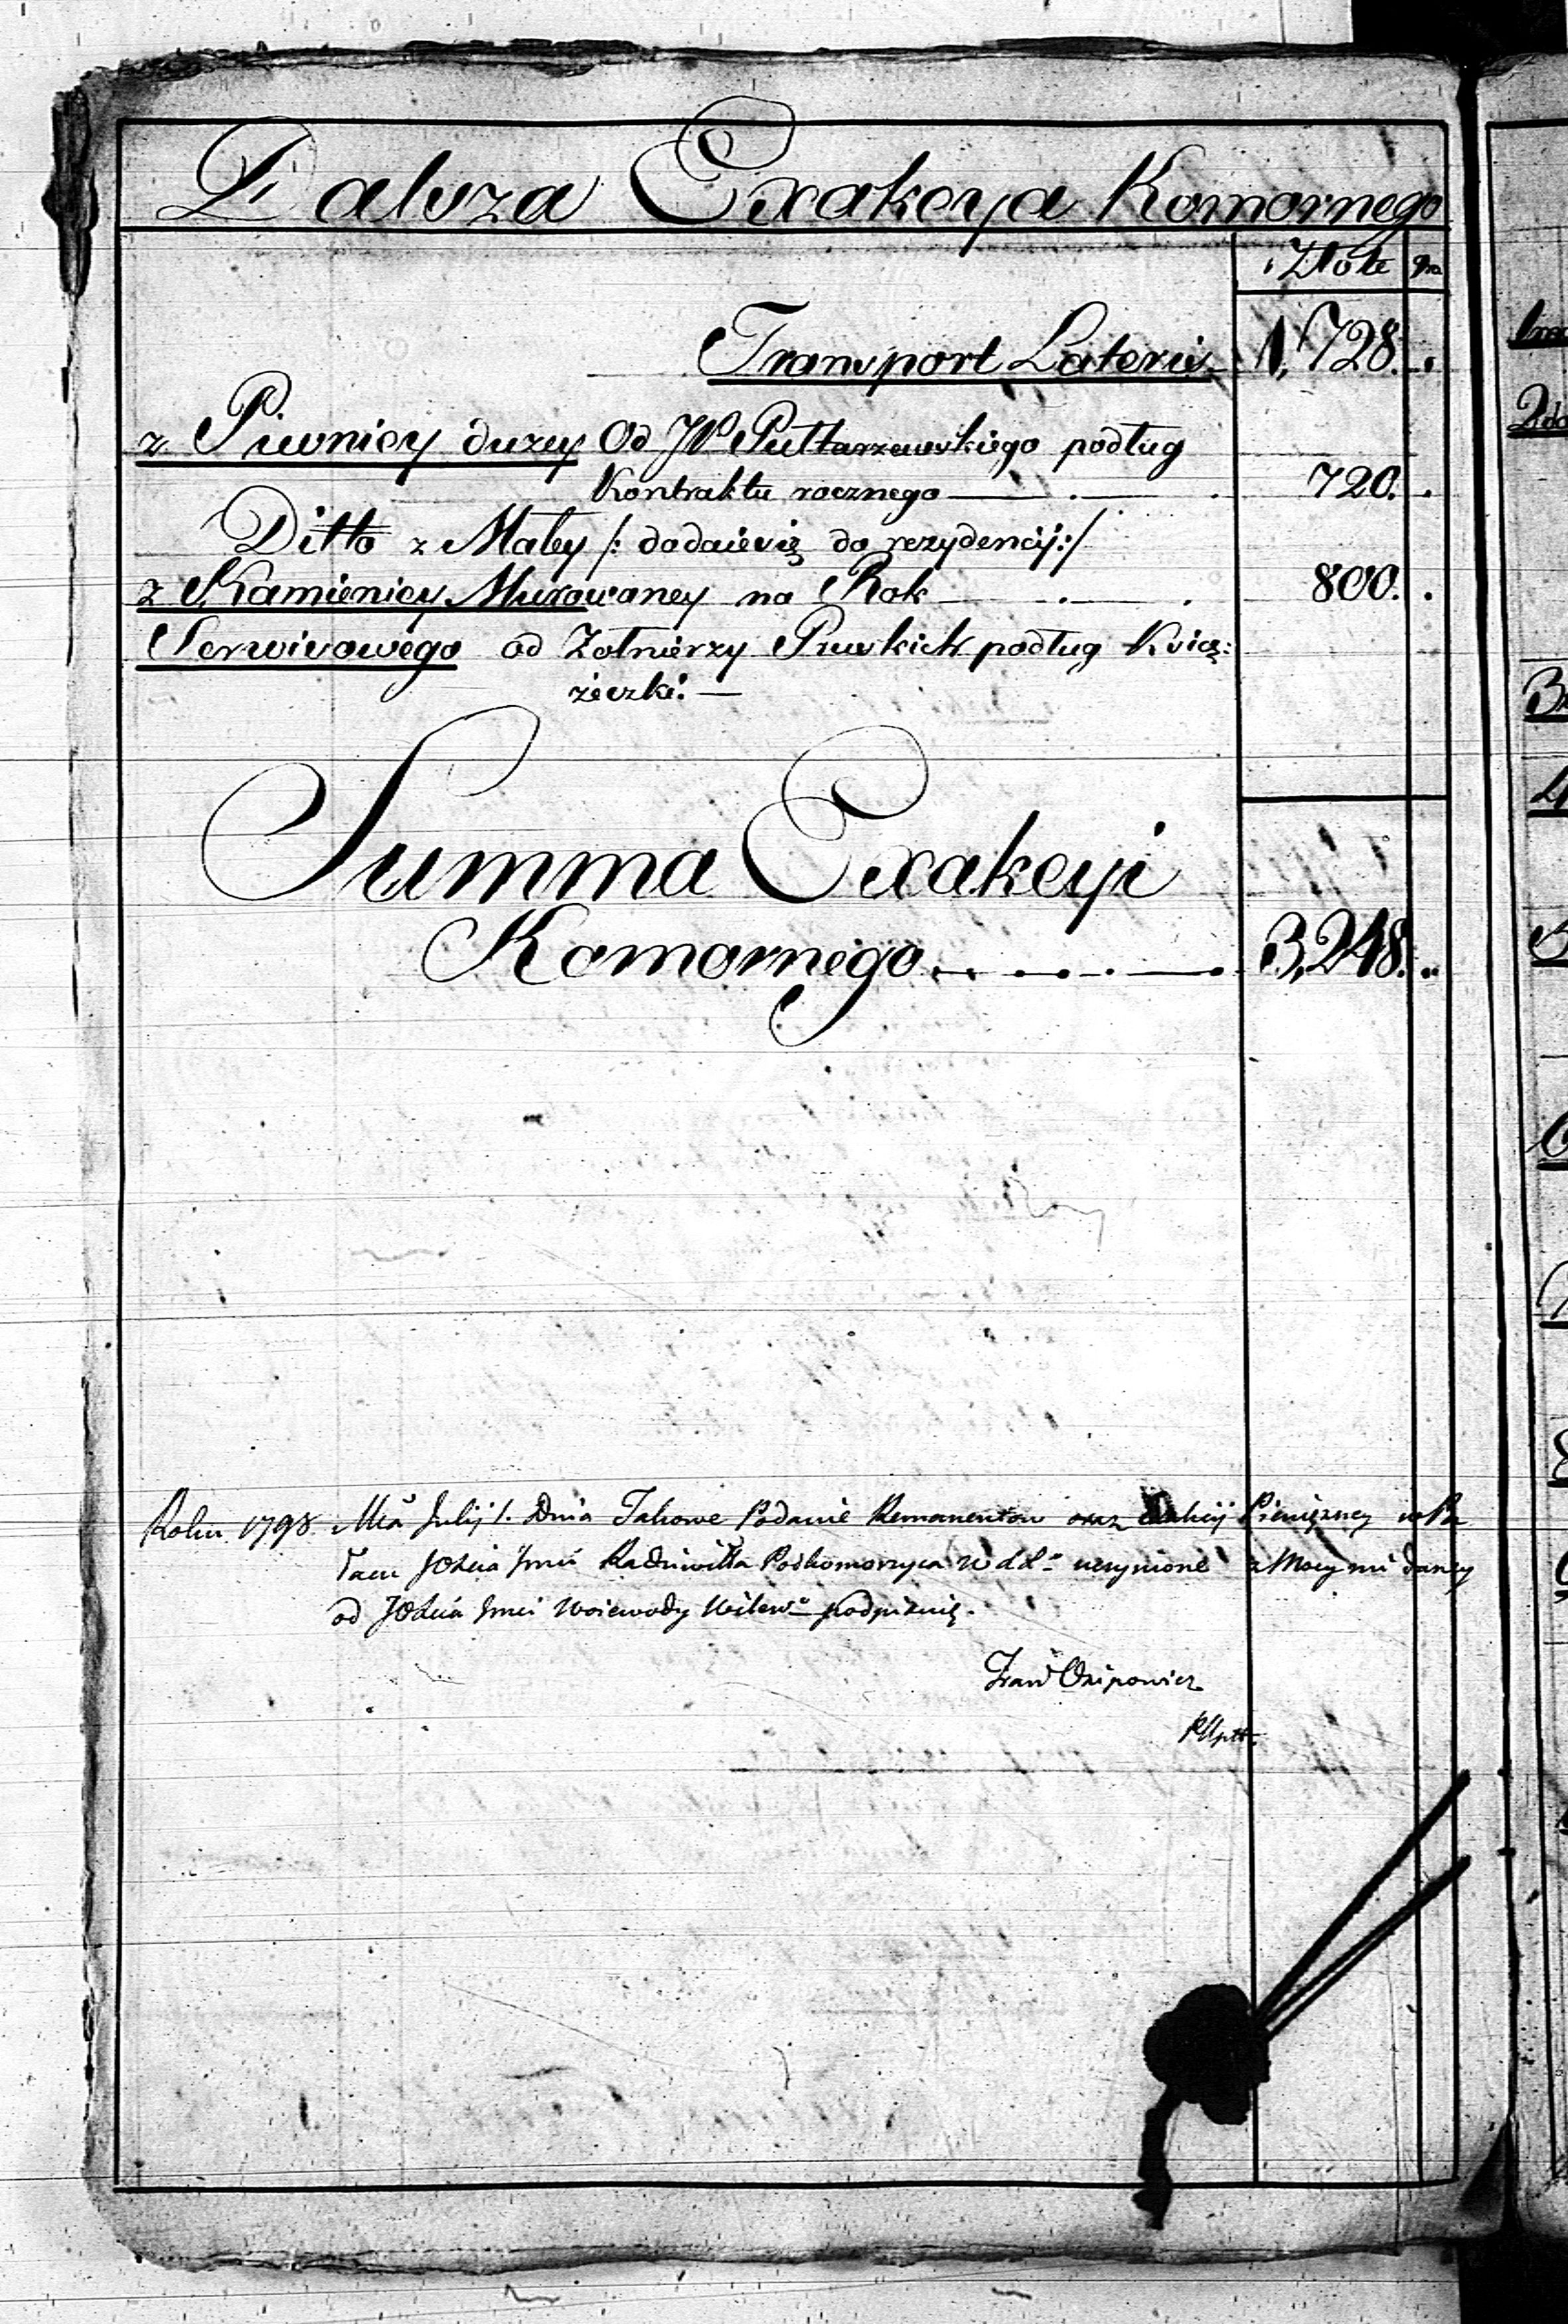 Dalsza Exakcya Komornego
Złote gr.
Transport Lateris 1,728. .
z Piwnicy duzey Od JP Pułtarzewskiego podług
Kontraktu rocznego — . — . 720. .
Ditto z Małey /: dodaie się do rezydencij :/
z Kamienicy Murowaney na Rok — . — . 800. .
Serwisowego od Zołnierzy Pruskich podług Ksią:
żeczki. —
Summa Exakcyi
Komornego . — . — . 3,248. ..
Roku 1798. Mca Julij 1. Dnia Takowe Podanie Remanentow oraz Pieniężney w Pa
łacu JOXcia Jmci Radziwiłła Podkomorzyca W. X. L. uczynione z Mocy mi daney
od JOXcia Jmci Woiewody Wileń podpisuię.
Osipowicz